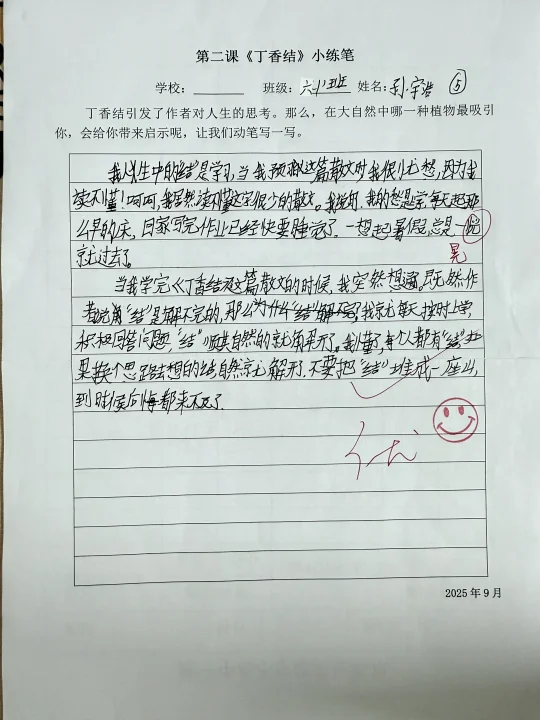 第二课《丁香结》小练笔
学校：______ 班级：六(1)班 姓名： ⑤
丁香结引发了作者对人生的思考。那么，在大自然中哪一种植物最吸引
你，会给你带来启示呢，让我们动笔写一写。
我人生中的结是学习,当我预习这篇散文时我很忧愁,因为我
读不懂!呵呵,我居然读不懂这字很少的散文。我觉的,我的愁是学,每天起那
么早的床,回家写完作业已经快要睡觉了.一想起暑假,总是一晃
晃
就过去了。
当我学完《丁香结》这篇散文的时候,我突然想通。既然作
者说角"结"是解不完的,那么为什么"结"解不完,我就每天按时上学,
积极回答问题,"结"顺其自然的就解开了。我懂了,每个人都有"结",如
果换个思路去想的结自然就解开.不要把"结"堆成一座山,
到时候后悔都来不及了.
优
2025年9月